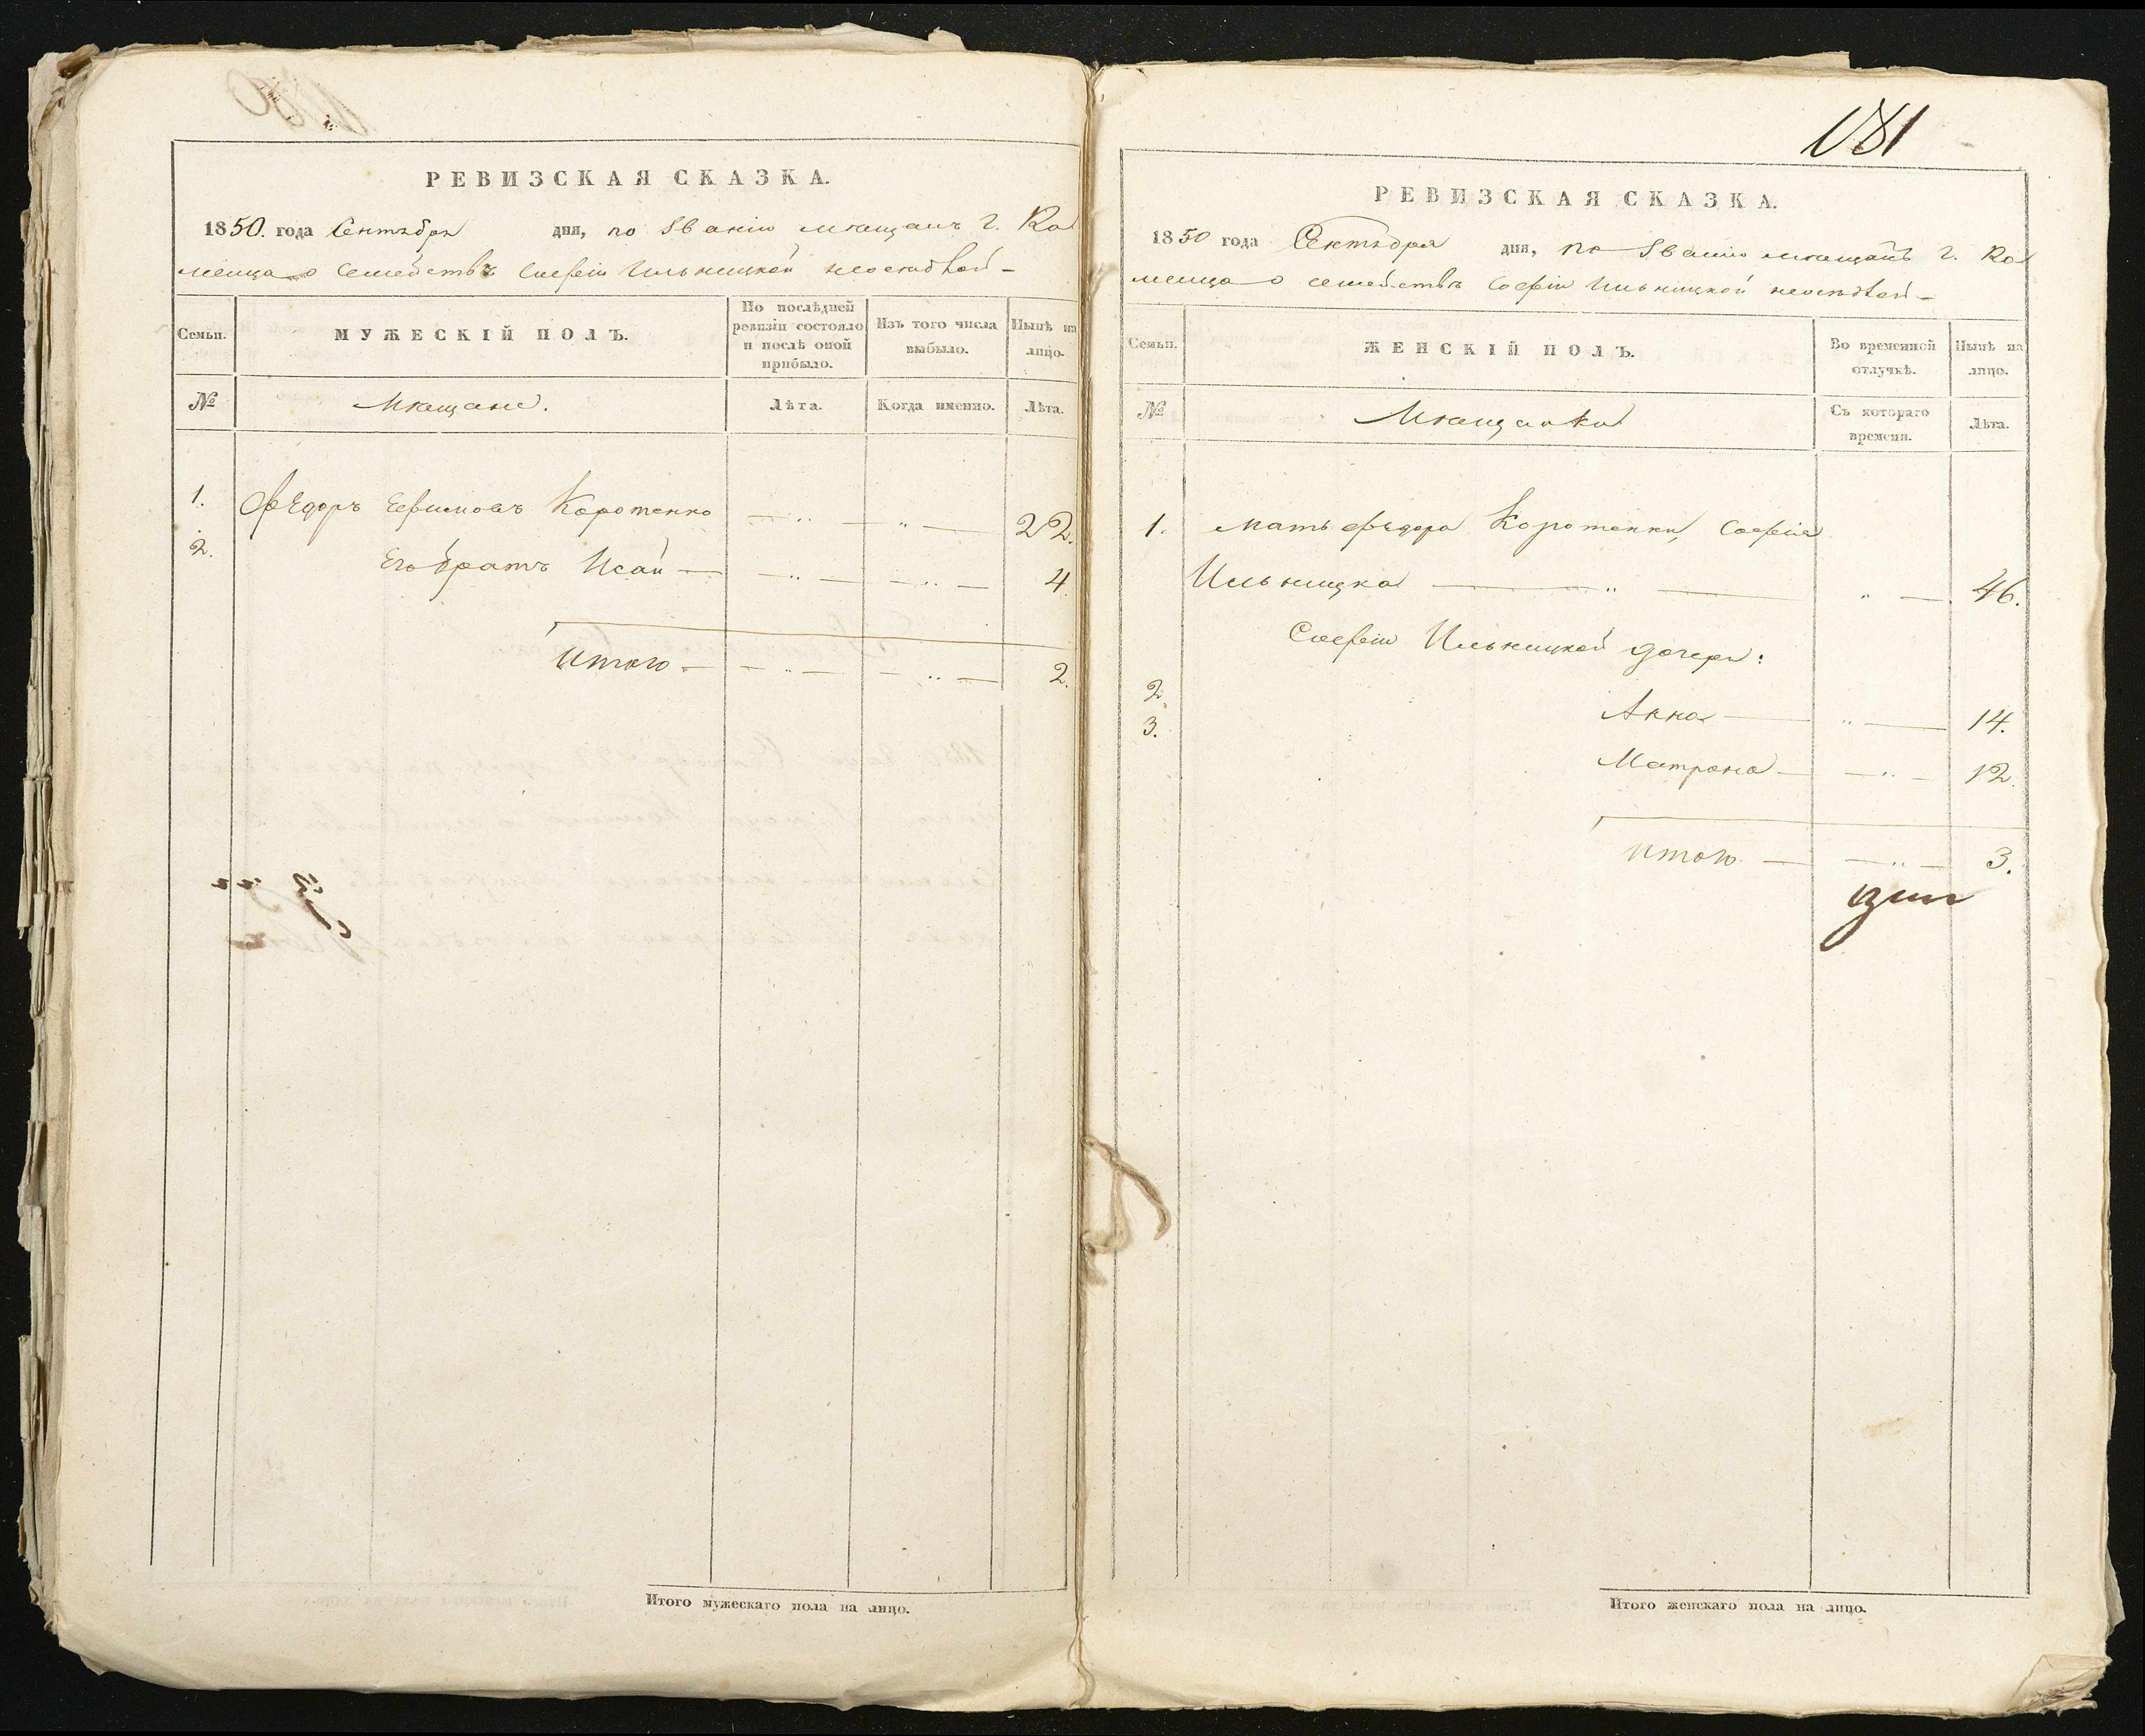 РЕВИЗСКАЯ СКАЗКА.
1850. года Сентября дня, по званію мѣщанъ г. Ка
менца о семействѣ Софіи Ильницкой
Семьи.
МУЖЕСКІЙ ПОЛЪ.
По послѣдней ревизіи состояло и послѣ оной прибыло.
Изъ того числа выбыло.
Нынѣ на лицо.
№
Мѣщане.
Лѣта.
Когда именно.
Лѣта.
1. Фѣдоръ Ефимовъ Коротенко — „ — „ — 22.
2. Его братъ Исай — — „ — — „ — 4.
Итого — — „ — — „ — 2.
Итого мужескаго пола на лицо.
181
РЕВИЗСКАЯ СКАЗКА.
1850 года Сентября дня, по званію мѣщанъ г. Ка
менца о семействѣ Софіи Ильницкой
Семьи.
ЖЕНСКІЙ ПОЛЪ.
Во временной отлучкѣ.
Нынѣ на лицо.
№
Мѣщанки
Съ котораго времени.
Лѣта.
1. Мать Фѣдора Коротенки, Софія
Ильницка — „ — „ — 46.
Софіи Ильницкой дочери:
2. Анна — „ — 14.
3. Матрона — — „ — 12.
Итого — — „ — 3.
Итого женскаго пола на лицо.